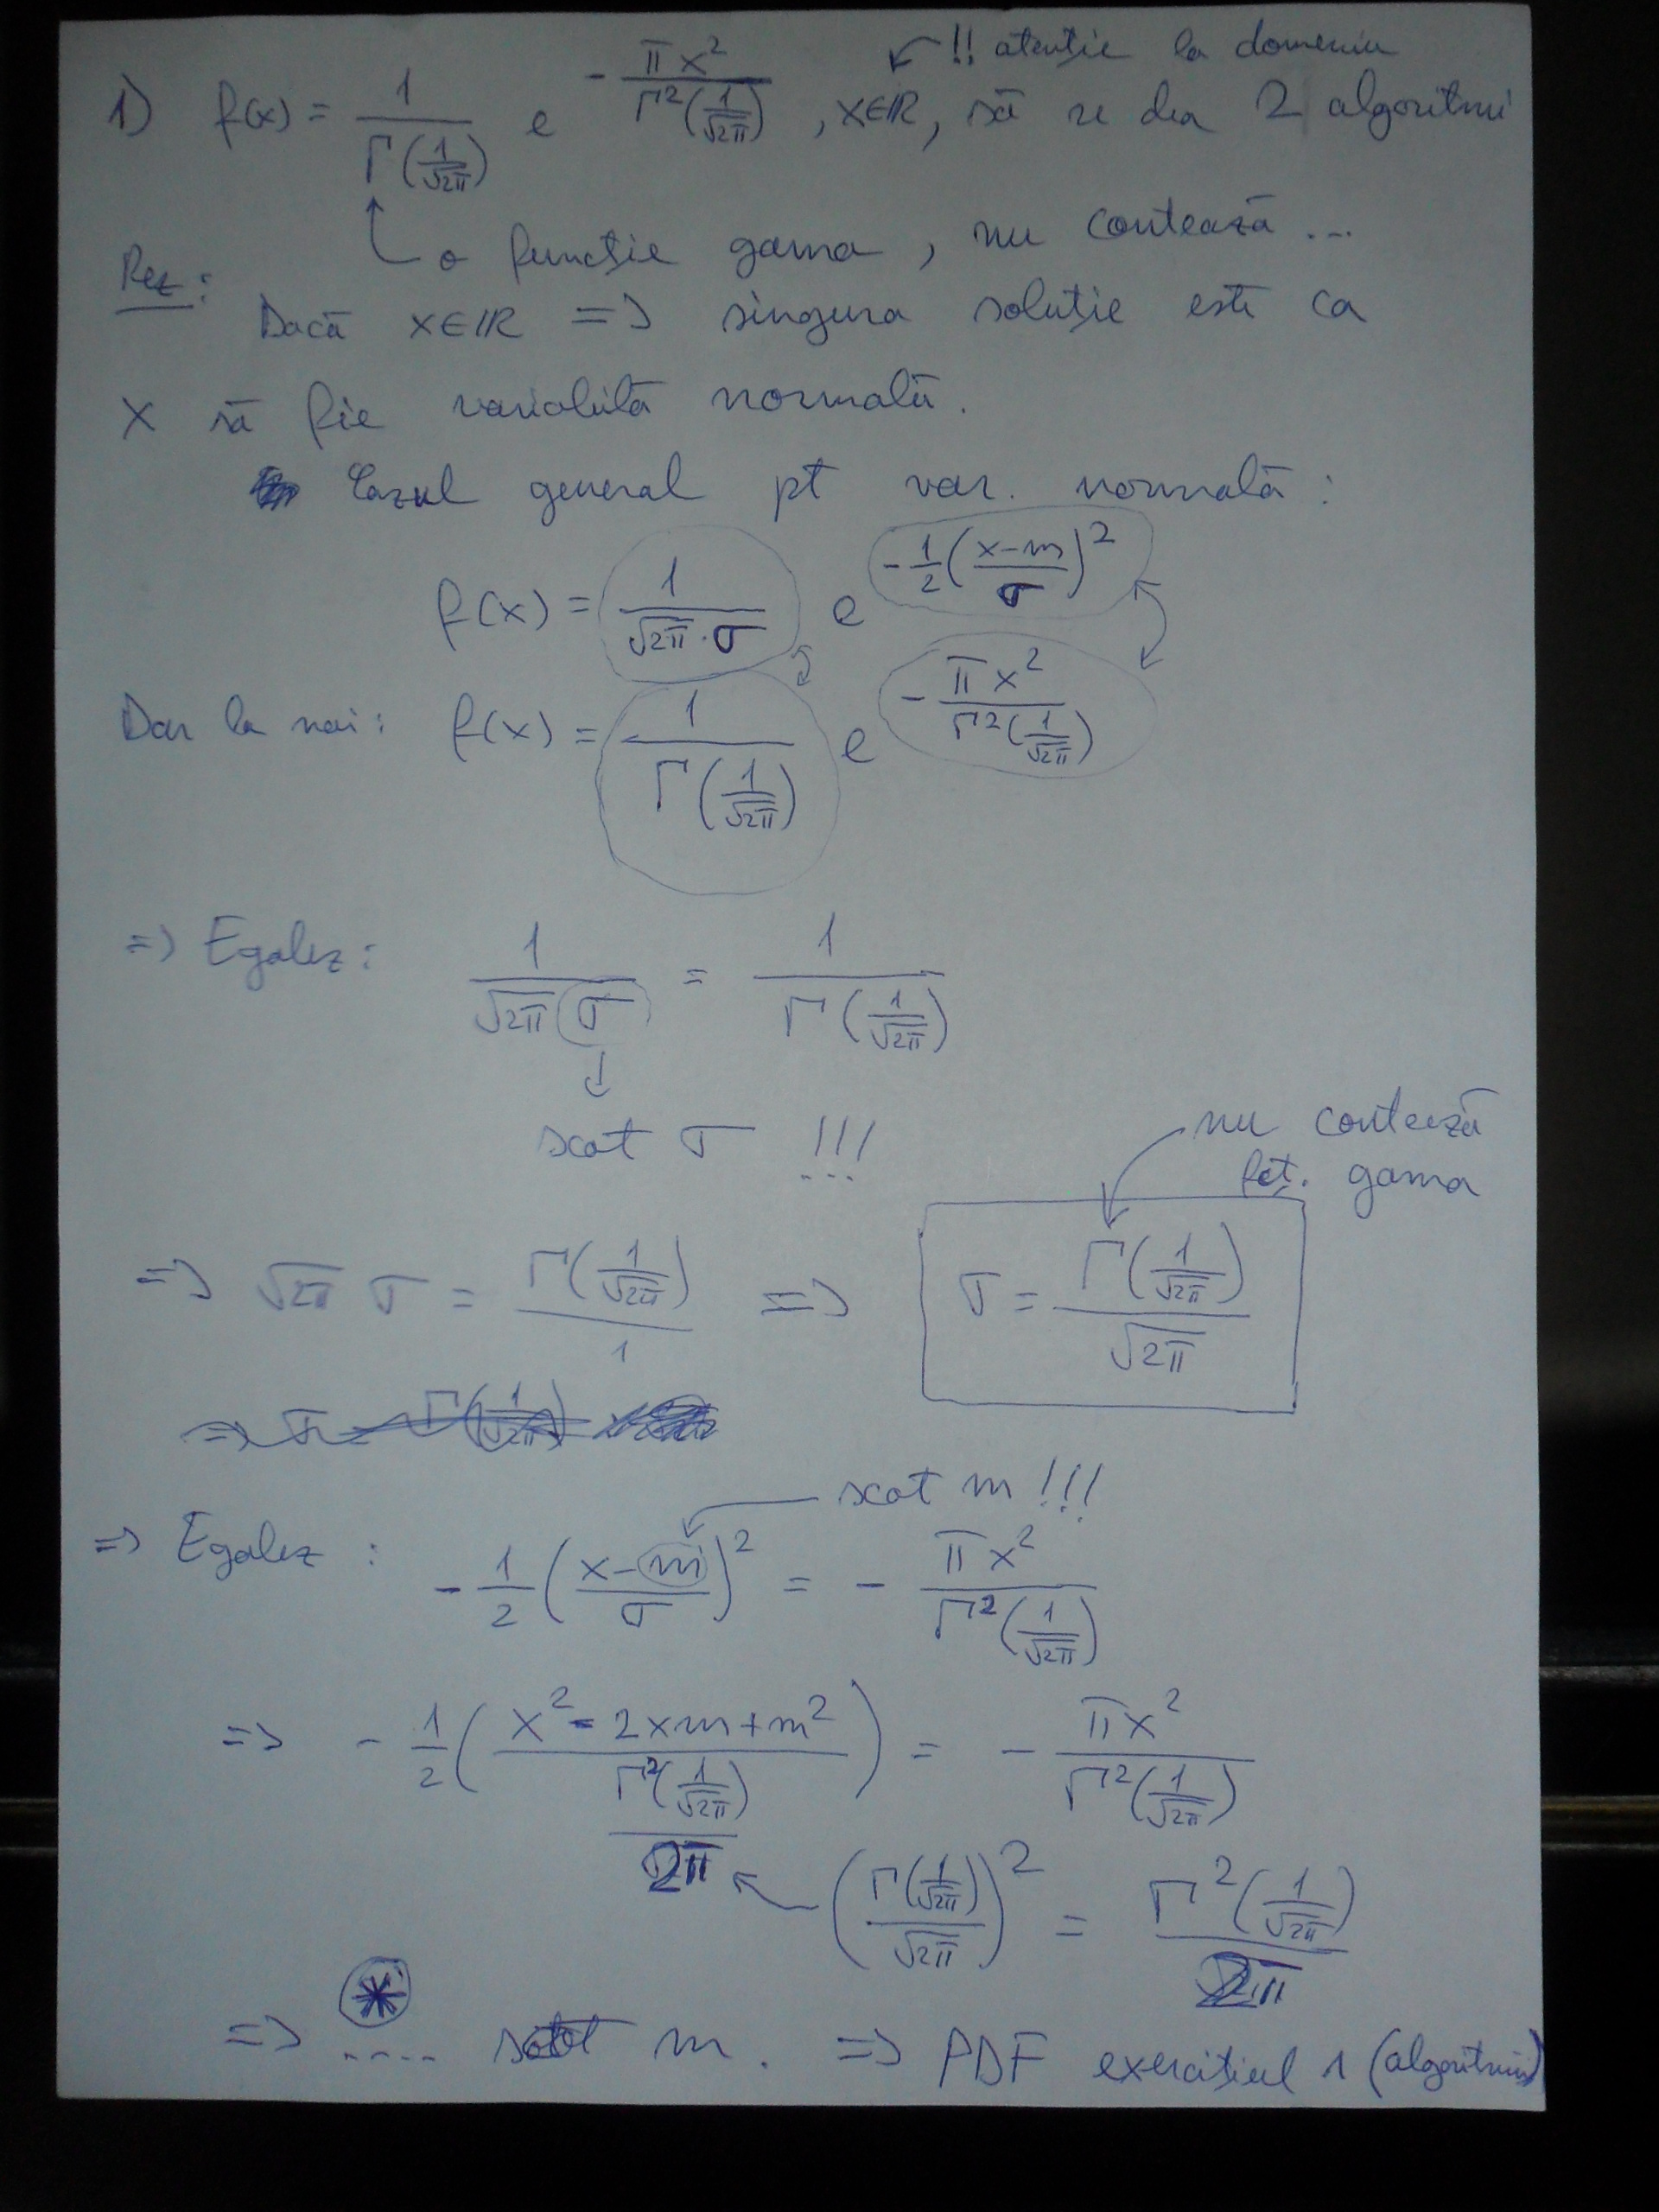 !! atenție la domeniu
1) f(x) = 1/Γ(1/√2π) e^(-πx²/Γ²(1/√2π)), x∈ℝ, să se dea 2 algoritmi
o funcție gama, nu contează ...
Rez:
Dacă x∈ℝ => singura soluție este ca
X să fie variabilă normală.
Cazul general pt var. normală:
f(x) = 1/(√2π · σ) e^(-1/2 ((x-m)/σ)²)
Dar la noi: f(x) = 1/Γ(1/√2π) e^(-πx²/Γ²(1/√2π))
=> Egalez: 1/(√2π σ) = 1/Γ(1/√2π)
scot σ !!!
nu contează
fct. gama
=> √2π σ = Γ(1/√2π)/1 => σ = Γ(1/√2π)/√2π
=> σ = Γ(1/√2π)
scot m !!!
=> Egalez: -1/2 ((x-m)/σ)² = -πx²/Γ²(1/√2π)
=> -1/2 ((x²-2xm+m²)/(Γ²(1/√2π)/2π)) = -πx²/Γ²(1/√2π)
(Γ(1/√2π)/√2π)² = Γ²(1/√2π)/2π
*
=> .... scot m. => PDF exercițiul 1 (algoritmii)